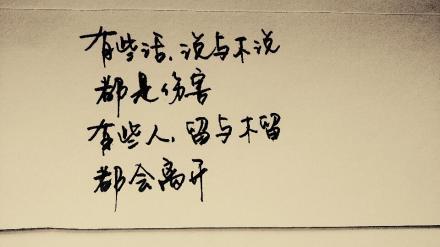 有些话,说与不说
都是伤害
有些人,留与不留
都会离开